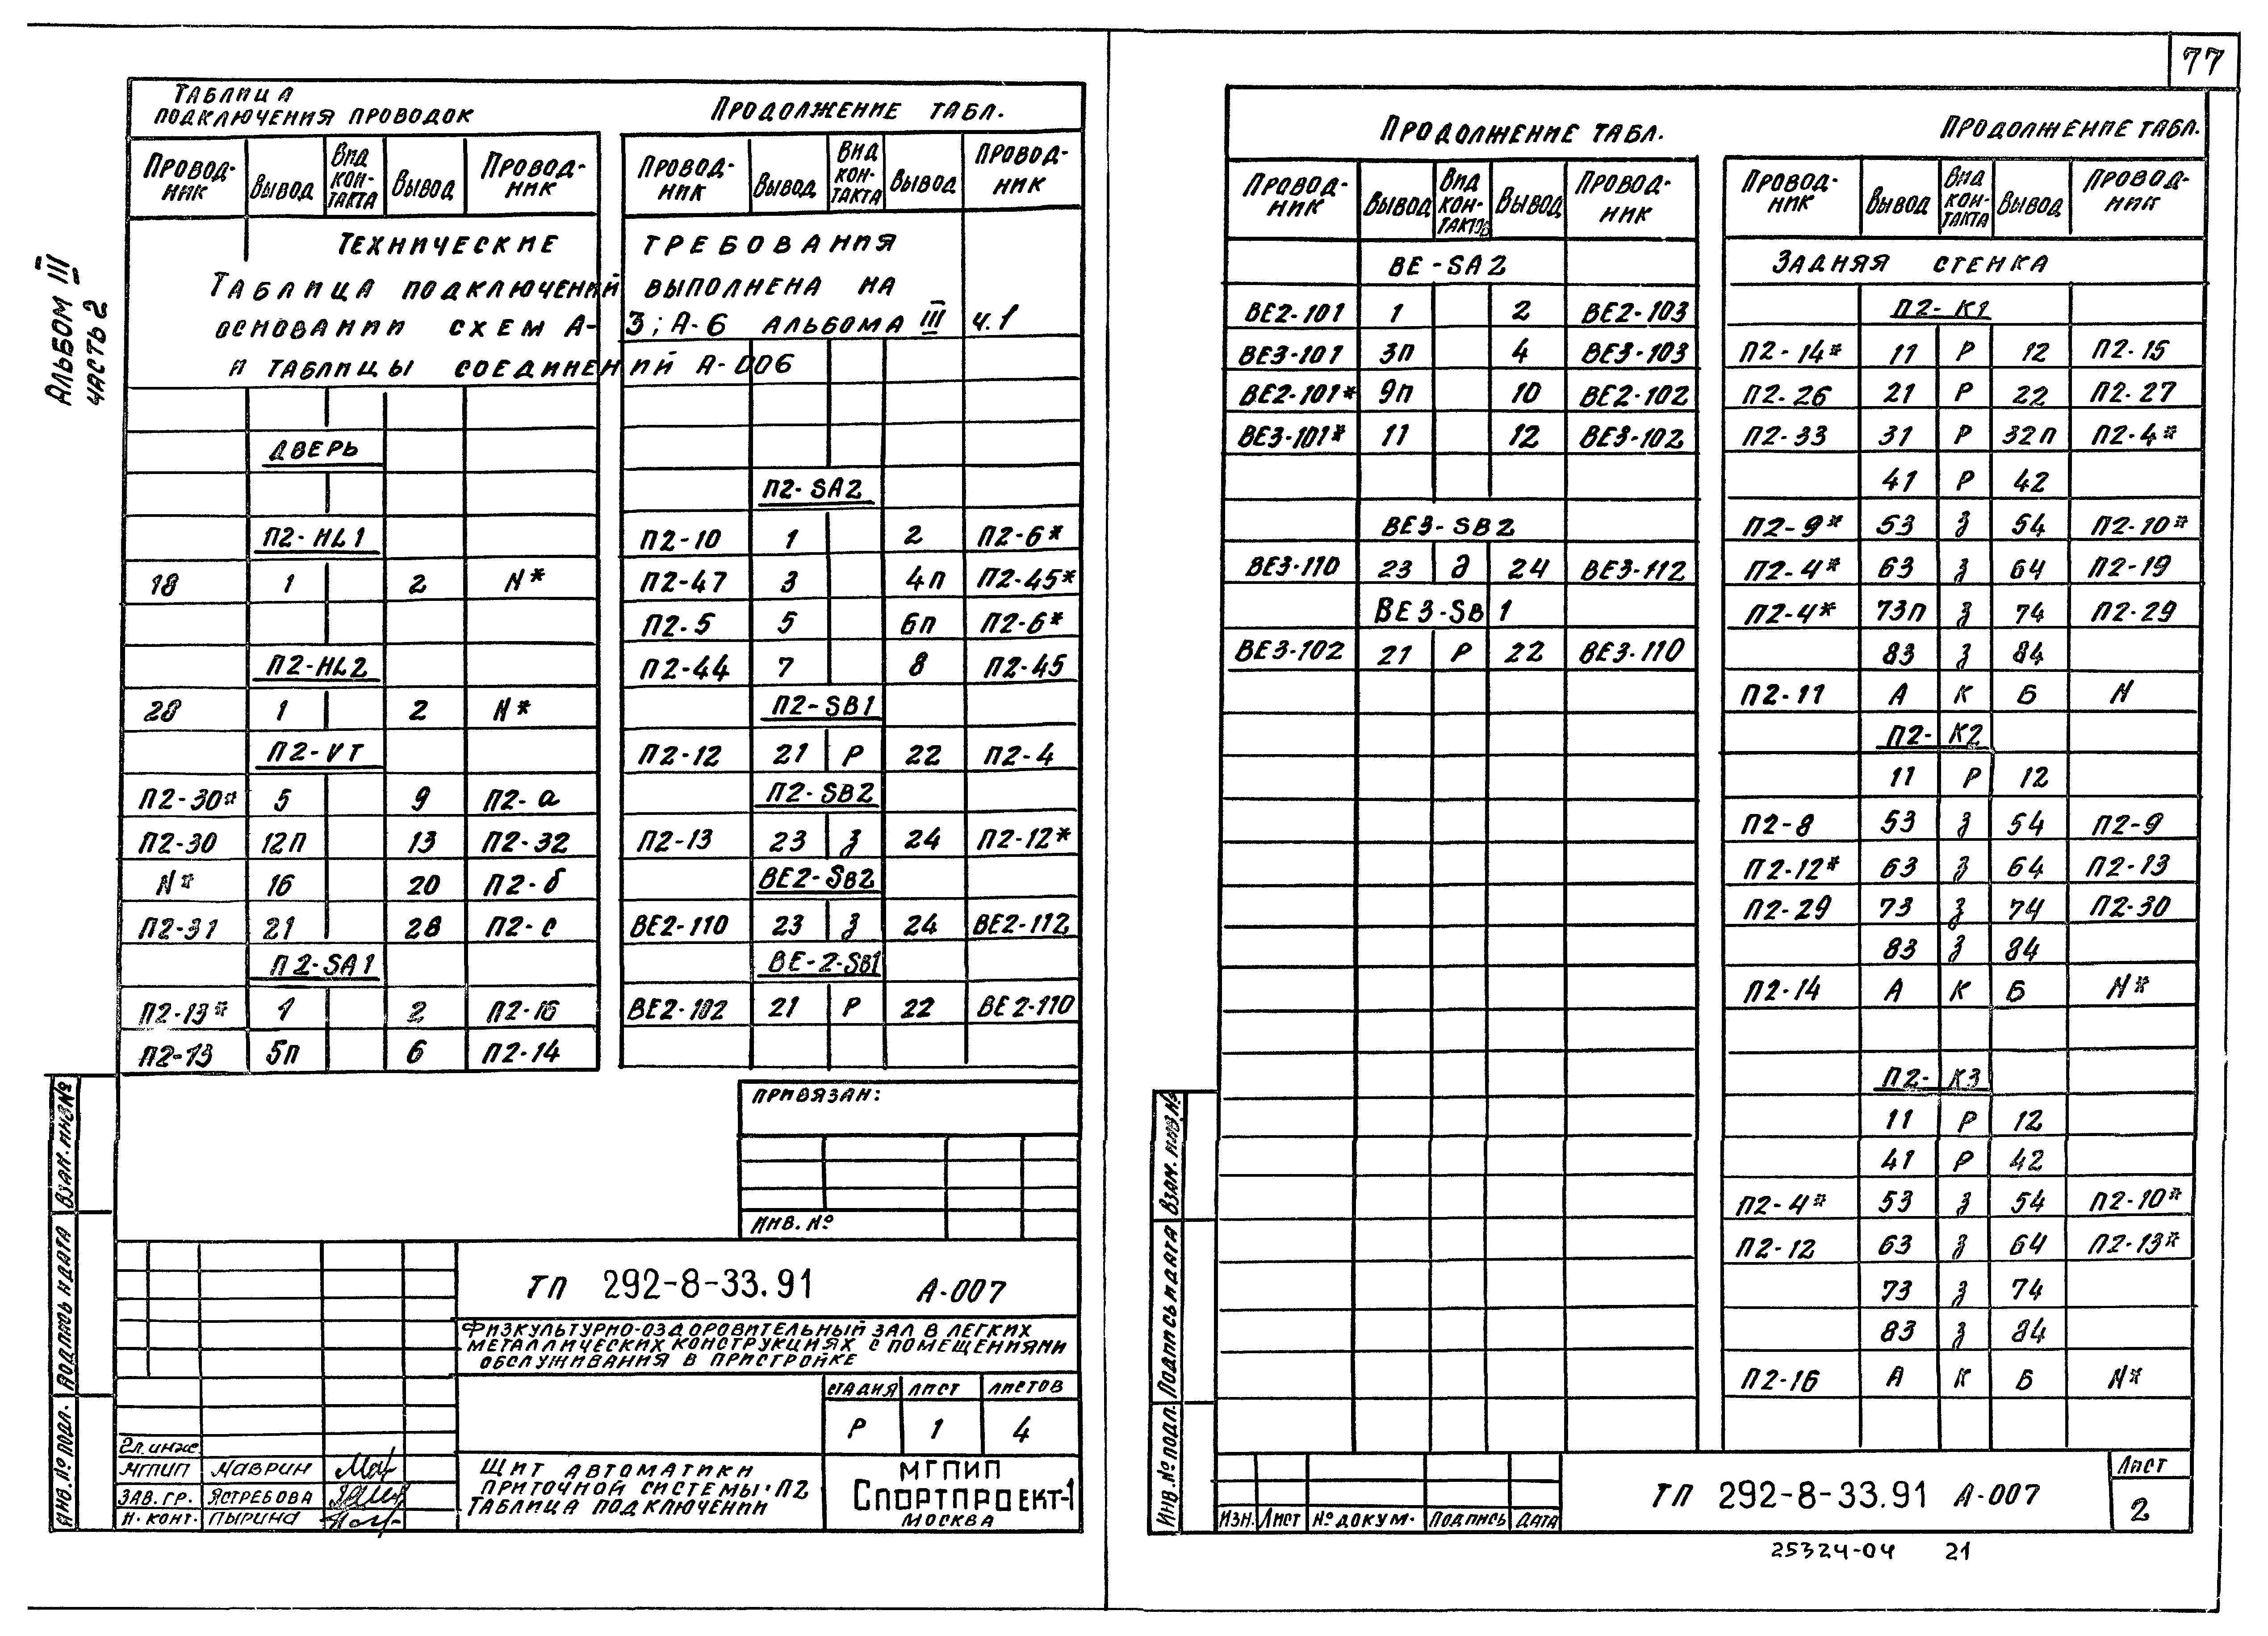 77
Альбом III
часть 2
Таблица
подключения проводок
Провод-ник Вывод Вид кон-такта Вывод Провод-ник
Технические требования
Таблица подключений выполнена на
основании схем А-3; А-6 альбома III ч.1
и таблицы соединений А-006
Дверь
П2-HL1
18 1 2 N*
П2-HL2
28 1 2 N*
П2-VT
П2-30* 5 9 П2-а
П2-30 12п 13 П2-32
N* 16 20 П2-б
П2-31 21 28 П2-с
П2-SA1
П2-13* 1 2 П2-16
П2-13 5п 6 П2-14
Продолжение табл.
Провод-ник Вывод Вид кон-такта Вывод Провод-ник
П2-SA2
П2-10 1 2 П2-6*
П2-47 3 4п П2-45*
П2-5 5 6п П2-6*
П2-44 7 8 П2-45
П2-SB1
П2-12 21 Р 22 П2-4
П2-SB2
П2-13 23 З 24 П2-12*
ВЕ2-SB2
ВЕ2-110 23 З 24 ВЕ2-112
ВЕ-2-SB1
ВЕ2-102 21 Р 22 ВЕ2-110
Привязан:
Инв. №
ТП 292-8-33.91 А-007
Физкультурно-оздоровительный зал в легких
металлических конструкциях с помещениями
обслуживания в пристройке
стадия лист листов
Р 1 4
Щит автоматики
приточной системы П2
Таблица подключении
МГПИП
Спортпроект-1
Москва
Гл. инж
МГПИП Маврин
Зав. гр. Ястребова
Н. конт. Пырина
Взам. инв №
Подпись и дата
Инв. № подл.
Продолжение табл.
Провод-ник Вывод Вид кон-такта Вывод Провод-ник
ВЕ-SA2
ВЕ2-101 1 2 ВЕ2-103
ВЕ3-101 3п 4 ВЕ3-103
ВЕ2-101* 9п 10 ВЕ2-102
ВЕ3-101* 11 12 ВЕ3-102
ВЕ3-SB2
ВЕ3-110 23 д 24 ВЕ3-112
ВЕ3-SB1
ВЕ3-102 21 Р 22 ВЕ3-110
Продолжение табл.
Провод-ник Вывод Вид кон-такта Вывод Провод-ник
Задняя стенка
П2-К1
П2-14* 11 Р 12 П2-15
П2-26 21 Р 22 П2-27
П2-33 31 Р 32п П2-4*
41 Р 42
П2-9* 53 З 54 П2-10*
П2-4* 63 З 64 П2-19
П2-4* 73п З 74 П2-29
83 З 84
П2-11 А К Б N
П2-К2
11 Р 12
П2-8 53 З 54 П2-9
П2-12* 63 З 64 П2-13
П2-29 73 З 74 П2-30
83 З 84
П2-14 А К Б N*
П2-К3
11 Р 12
41 Р 42
П2-4* 53 З 54 П2-10*
П2-12 63 З 64 П2-13*
73 З 74
83 З 84
П2-16 А К Б N*
Взам. инв №
Подпись и дата
Инв. № подл.
Изм. Лист № докум. Подпись Дата
ТП 292-8-33.91 А-007
Лист
2
25324-04 21